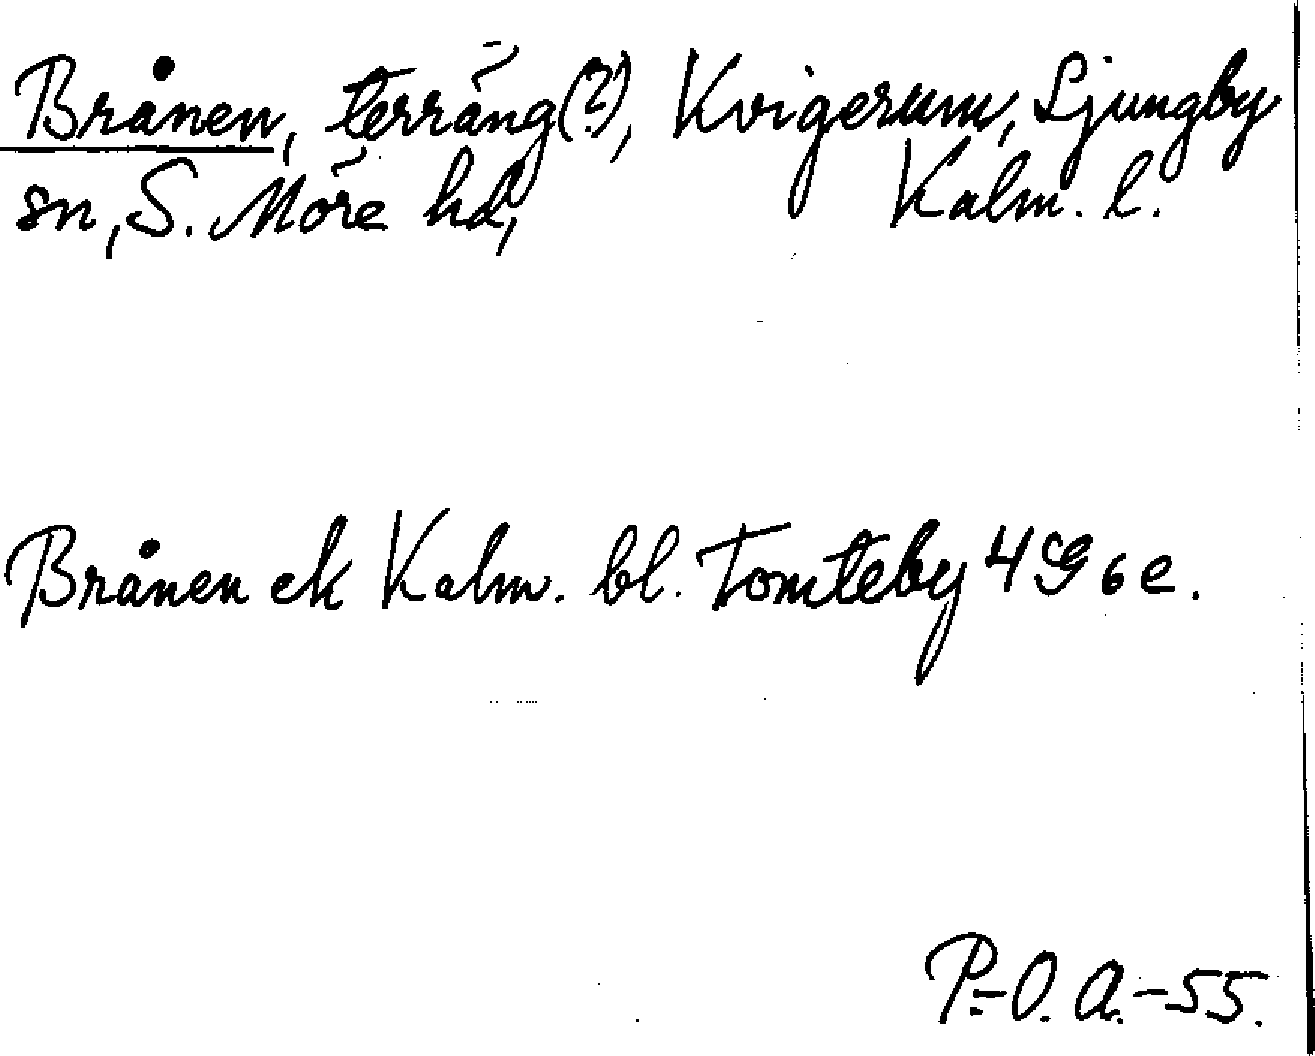 Brånen, terräng(?), Kvigerum, Ljungby
sn, S. Möre hd, Kalm. l.
Brånen ek Kalm. bl. Tomteby 4G 6e.
P.-O. A.-55.